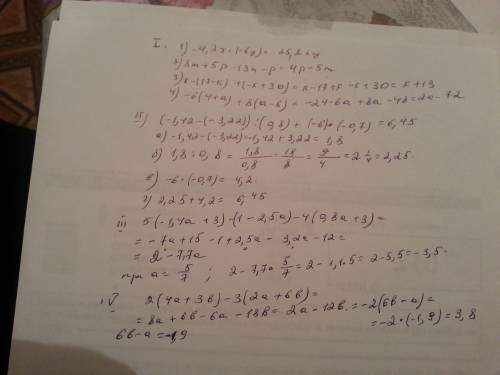 I. 1) -4,2x·(-6y) = 25,2xy
2) 8m+5p-13m-p=4p-5m
3) k-(17-k)+(-k+30)=k-17+k-k+30=k+13
4) -6(4+a)+8(a-6)=-24-6a+8a-48=2a-72
II) (-1,42-(-3,22)):(0,8)+(-6)·(-0,7)=6,45
а) -1,42-(-3,22)=-1,42+3,22=1,8
б) 1,8:0,8=1,8/0,8=18/8=9/4=2 1/4=2,25.
в) -6·(-0,7)=4,2.
г) 2,25+4,2=6,45
III 5(-1,4a+3)-(1-2,5a)-4(0,8a+3)=
= -7a+15-1+2,5a-3,2a-12=
= 2-7,7a
при a=5/7; 2-7,7·5/7=2-1,1·5=2-5,5=-3,5.
IV 2(4a+3b)-3(2a+6b)=
=8a+6b-6a-18b=2a-12b.=-2(6b-a)=
6b-a=-1,9 =-2·(-1,9)=3,8